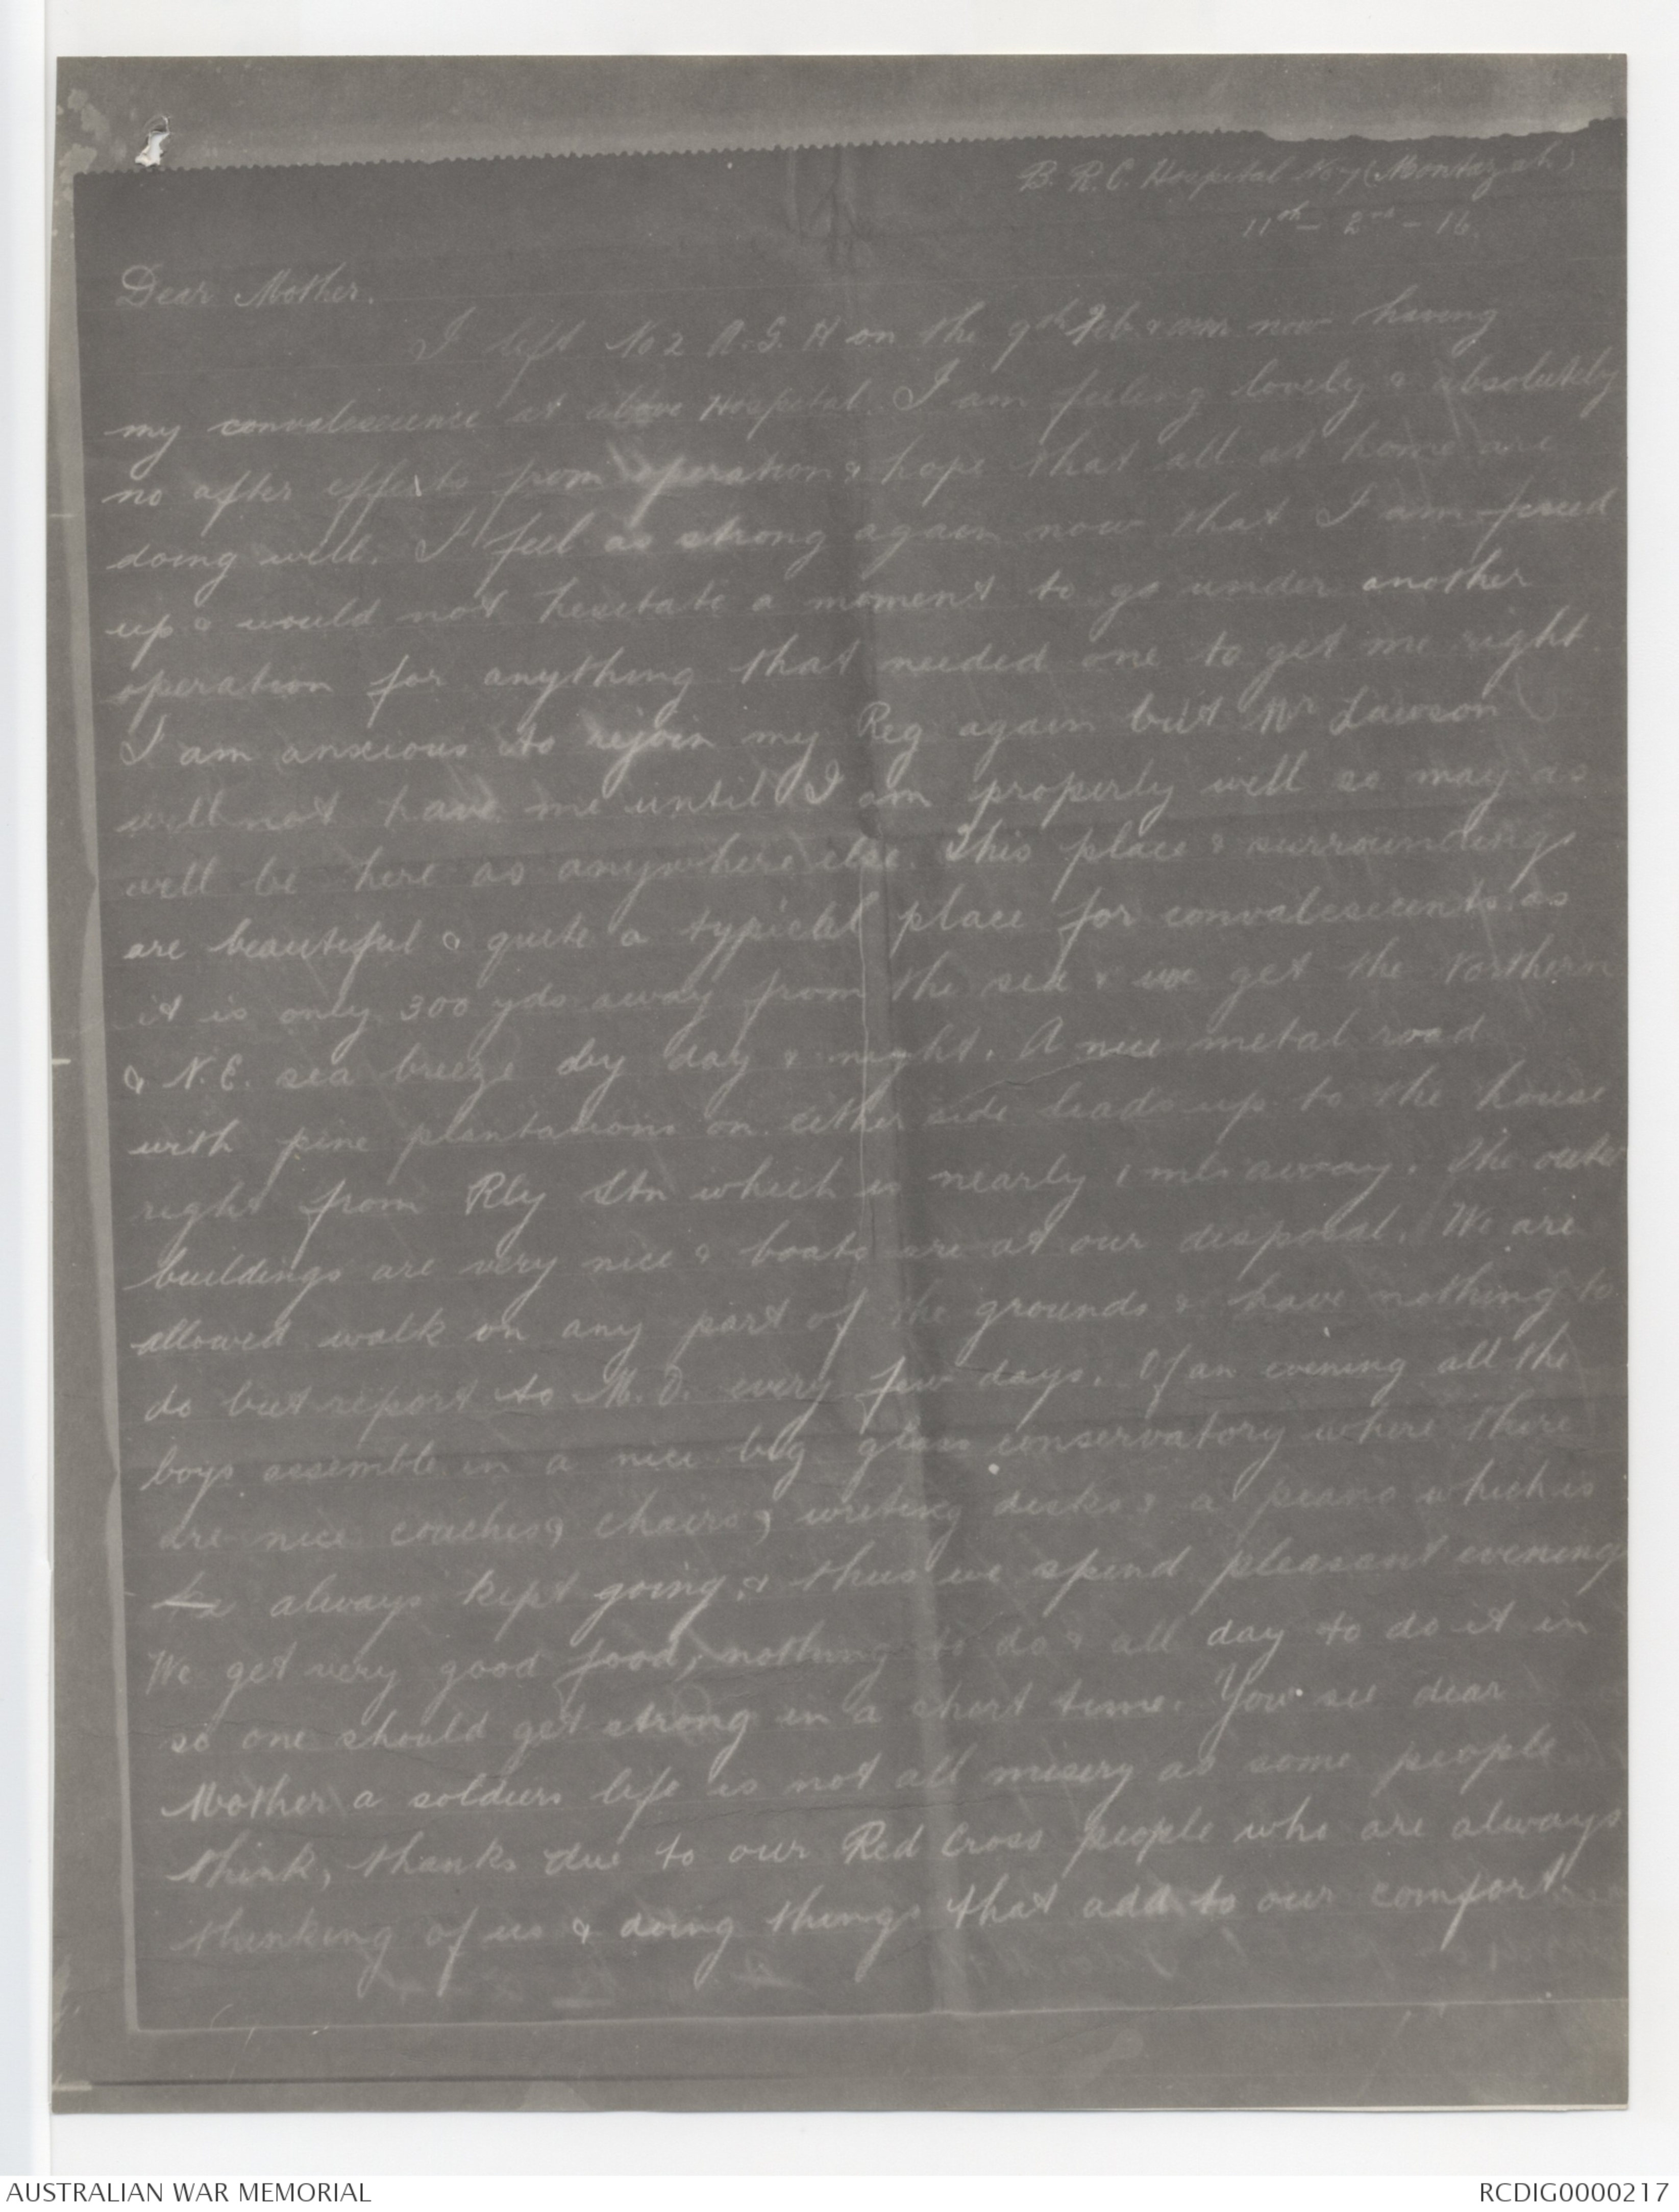 B. R. C. Hospital No 7 (Montazah)
11th - 2nd - 16.
Dear Mother.
I left No 2 A. G. H on the 9th Feb & am now having
my convalescience at above Hospital. I am feeling lovely & absolutely
no after effects from operation & hope that all at home are
doing well. I feel as strong again now that I am
up & would not hesitate a moment to go under another
operation for anything that needed one to get me right.
I am anxious to rejoin my Reg again but Mr Lawson
will not have me until I am properly well so may as
well be here as anywhere else. This place & surroundings
are beautiful & quite a typical place for convalescents as
it is only 300 yds away from the sea & we get the Northern
& N.E. sea breeze by day & night. A nice metal road
with pine plantations on either side leads up to the house
right from Rly Stn which is nearly 1 mle away. The outer
buildings are very nice & boats are at our disposal. We are
allowed walk on any part of the grounds & have nothing to
do but report to M. O. every few days. Of an evening all the
boys assemble in a nice big glass conservatory where there
are nice couches, chairs, writing desks & a piano which is
always kept going, & thus we spend pleasant evenings
We get very good food, nothing to do & all day to do it in
so one should get strong in a short time. You see dear
Mother a soldiers life is not all misery as some people
think, thanks due to our Red Cross people who are always
thinking of us & doing things that add to our comfort.
AUSTRALIAN WAR MEMORIAL
RCDIG0000217